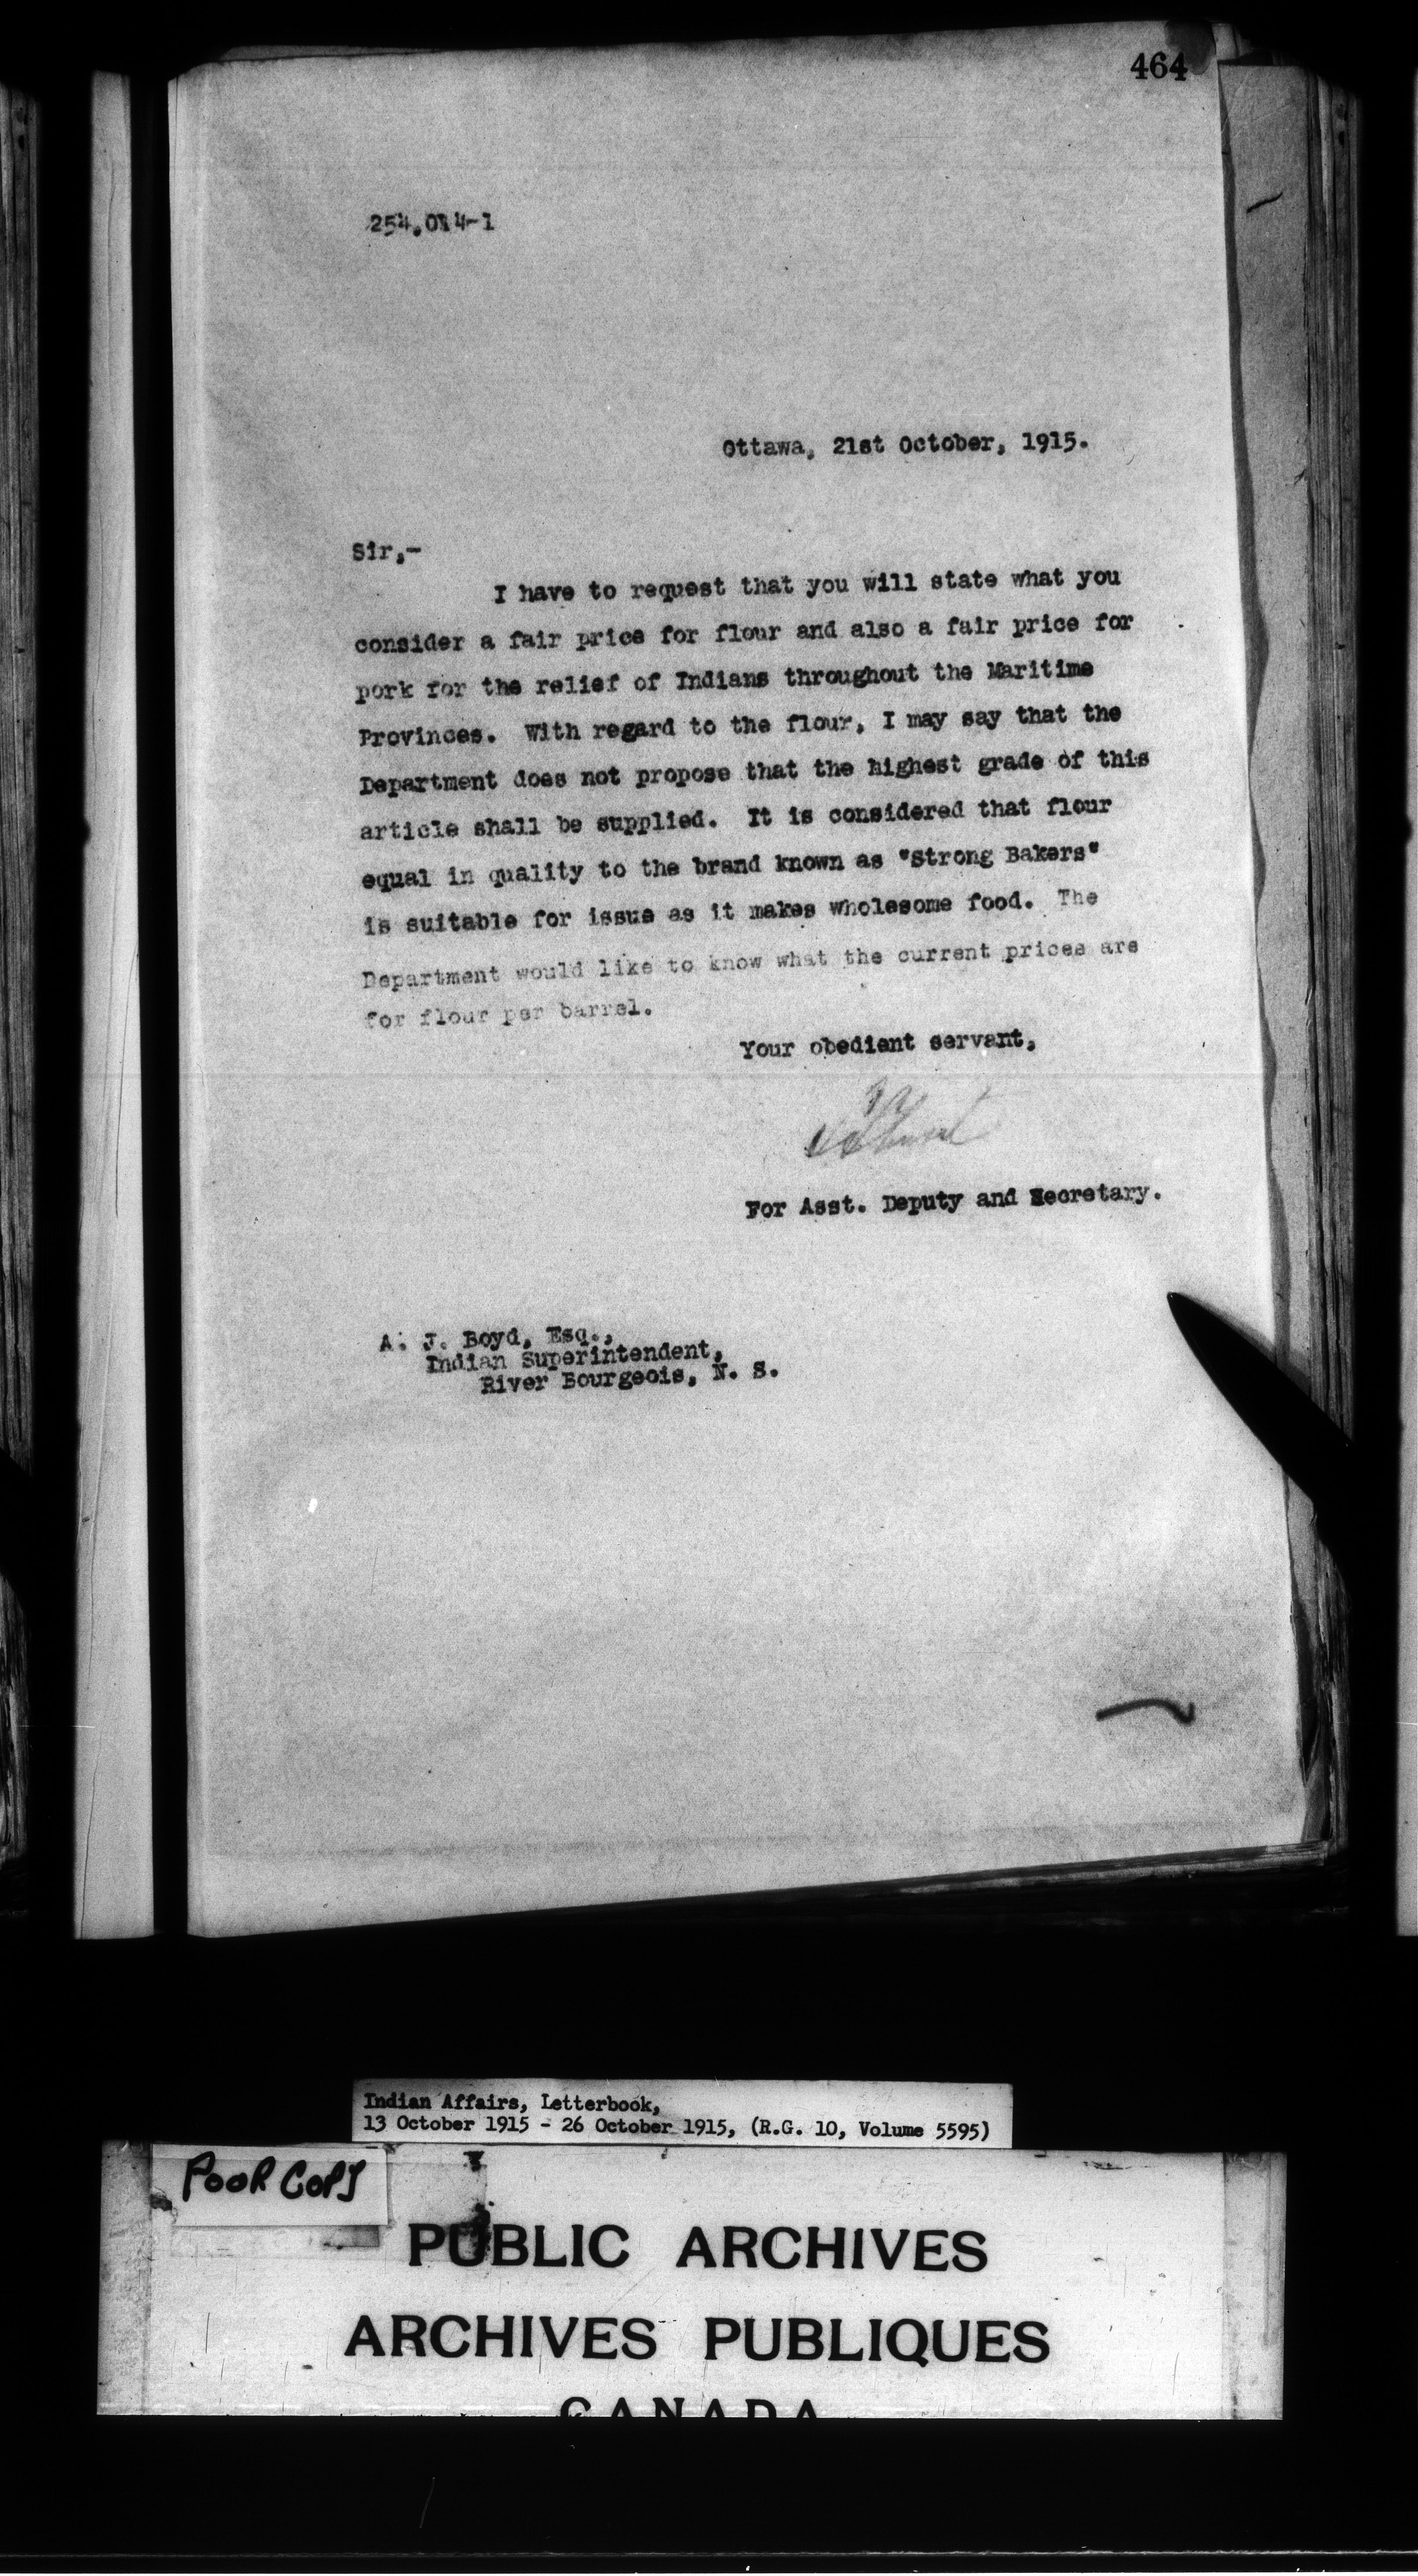 464
254.014-1
Ottawa, 21st October, 1915.
Sir,-
I have to request that you will state what you
consider a fair price for flour and also a fair price for
pork for the relief of Indians throughout the Maritime
Provinces. With regard to the flour, I may say that the
Department does not propose that the highest grade of this
article shall be supplied. It is considered that flour
equal in quality to the brand known as "Strong Bakers"
is suitable for issue as it makes wholesome food. The
Department would like to know what the current prices are
for flour per barrel.
Your obedient servant,
For Asst. Deputy and Secretary.
A. J. Boyd, Esq.,
Indian Superintendent,
River Bourgeois, N. S.
Indian Affairs, Letterbook,
13 October 1915 - 26 October 1915, (R.G. 10, Volume 5595)
POOR COPY
PUBLIC ARCHIVES
ARCHIVES PUBLIQUES
CANADA